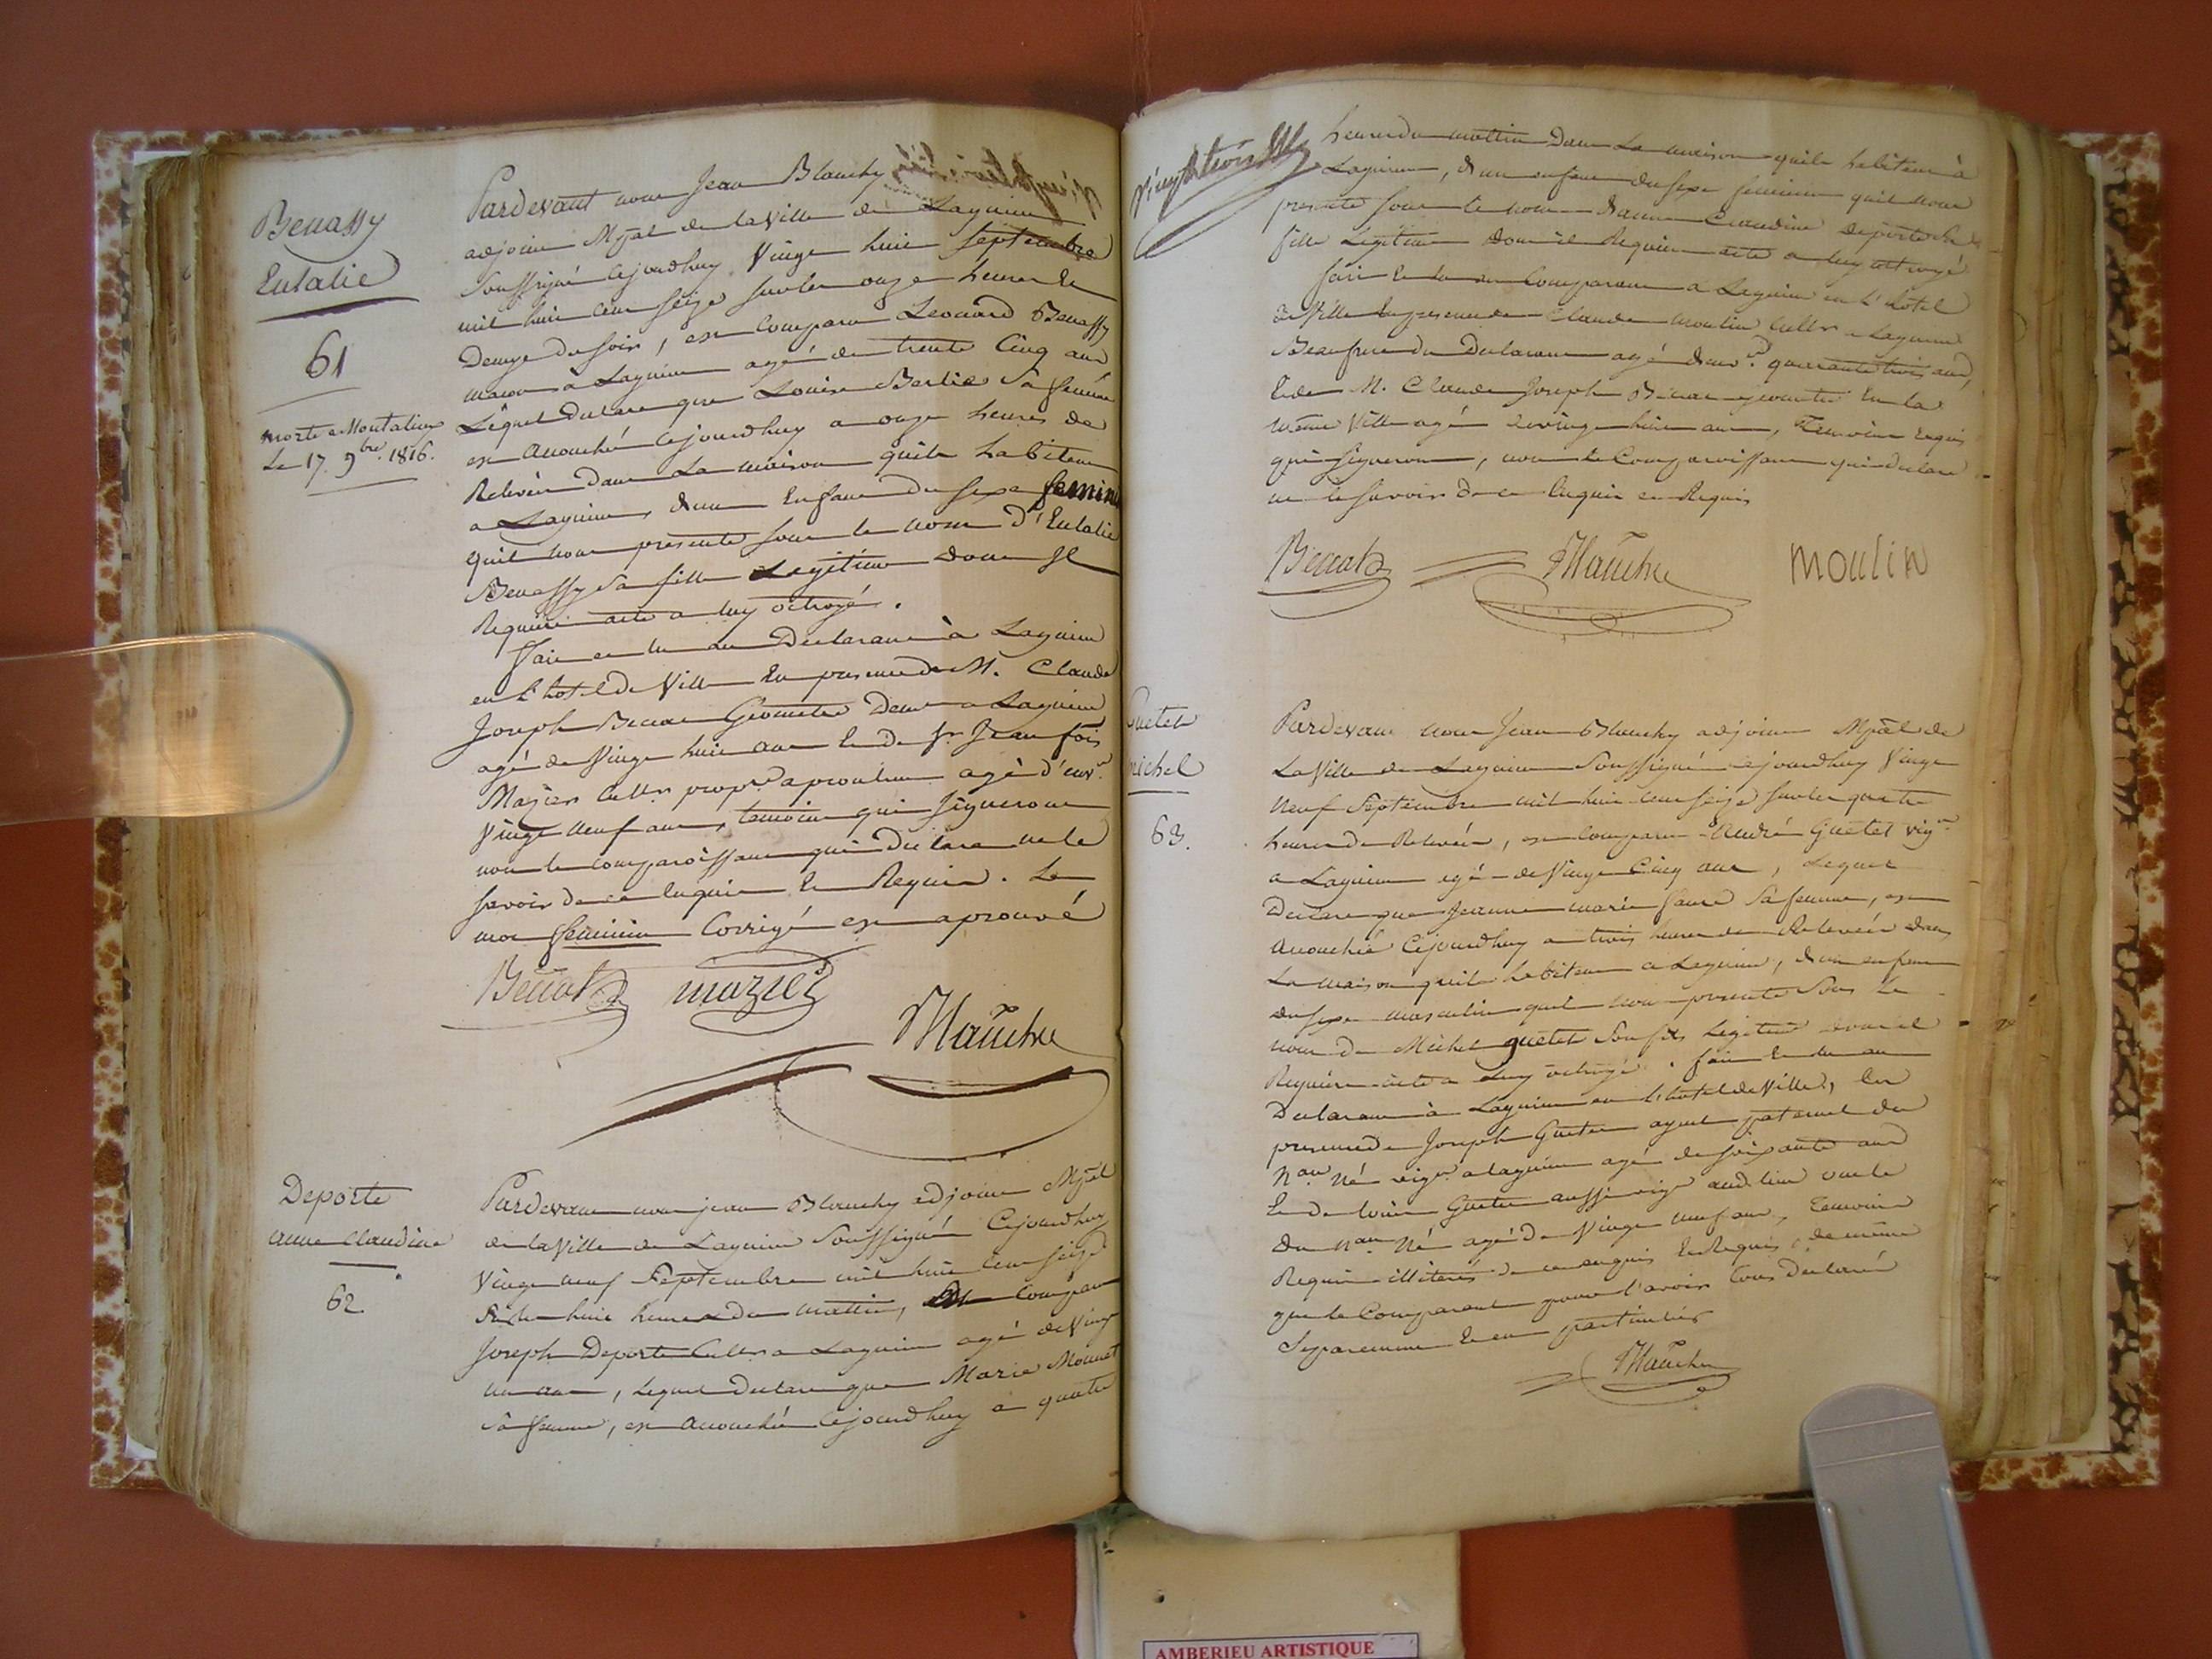 Benassy
Eulalie
61
morte a Montalieu
Le 17 9bre 1816.
Pardevant nous Jean Blanchy
adjoint Mpal de la Ville de Lagnieu
Soussigné Cejourdhuy Vingt huit Septembre
mil huit Cent Seize Sur les onze heures Et
Demye du Soir, est Comparu Leonard Benassy
macon a Lagnieu agé de trente Cinq ans
Lequel declare que Louise Sa femme
est accouchée Cejourdhuy a onze heures de
Relevée dans La maison quils habitent
a Lagnieu, dun Enfant du Sexe feminin
quil nous presente Sous le nom D'Eulalie
Benassy Sa fille Legitime dont Il
Requiere acte a luy octroyé.
Fait et lu au Declarant à Lagnieu
en L'hotel de Ville En presence de M. Claude
Joseph Geometre a Lagnieu
agé de Vingt huit ans Et de Sr Jean fois
Mazier Cultr propre agé d'envn
Vingt neuf ans, temoins qui Signeront
non le comparoissant qui Declare ne le
Savoir de ce Enquis Et Requis. Le
mot feminin Corrigé est aprouvé
mazier
Deporte
anne Claudine
62.
Pardevant nous jean Blanchy adjoint Mpal
de la Ville de Lagnieu Soussigné Cejourdhuy
Vingt neuf Septembre mil huit Cent Seize
Sur les huit heures du mattin, Est Comparu
Joseph Deporte Cultr a Lagnieu agé de Vingt
un ans, Lequel declare que Marie Monnet
Sa femme, est accouchée Cejourdhuy a quatre
Vingt trois
heures du mattin Dans La maison quils habitent à
Lagnieu, d'un enfant du Sexe feminin quil nous
presente Sous le nom Danne Claudine deporte Sa
fille Legitime dont il Requiere acte a luy octroyé
fait Et lu au Comparant a Lagnieu en L'hotel
de Ville En presence de Claude moulin Cultr a Lagnieu
Beaufrere du Declarant agé d'envon quarante trois ans,
Et de M. Claude Joseph geometre En la
même Ville agé de vingt huit ans, Temoins Requis
qui Signeront, non le Comparoissant qui declare
ne le Savoir de ce Enquis et Requis
moulin
Guetet
michel
63.
Pardevant nous Jean Blanchy adjoint Mpal de
La Ville de Lagnieu Soussigné cejourdhuy Vingt
neuf Septembre mil huit cent Seize Sur les quatre
heures de Relevée, est Comparu André Guetet vigon
a Lagnieu agé de Vingt Cinq ans, Lequel
Declare que Jeanne marie Sa femme, est
accouchée Cejourdhuy a trois heures de Relevée dans
La maison quils habitent a Lagnieu, dun enfant
du Sexe masculin quil nous presente Sous le
nom de Michel guetet Son fils Legitime dont il
Requiere acte a Luy octroyé. fait Et lu au
Declarant à Lagnieu en L'hotel de Ville, En
presence de Joseph Guetet ayeul paternel du
Nau Né vigon a lagnieu agé de Soixante ans
Et de Guetet aussi vigon aud. lieu oncle
du Nau Né agé de Vingt neuf ans, Temoins
Requis illiterés de ce enquis Et Requis de même
que le Comparant pour l'avoir tous declaré
Separement Et en particulier
AMBERIEU ARTISTIQUE